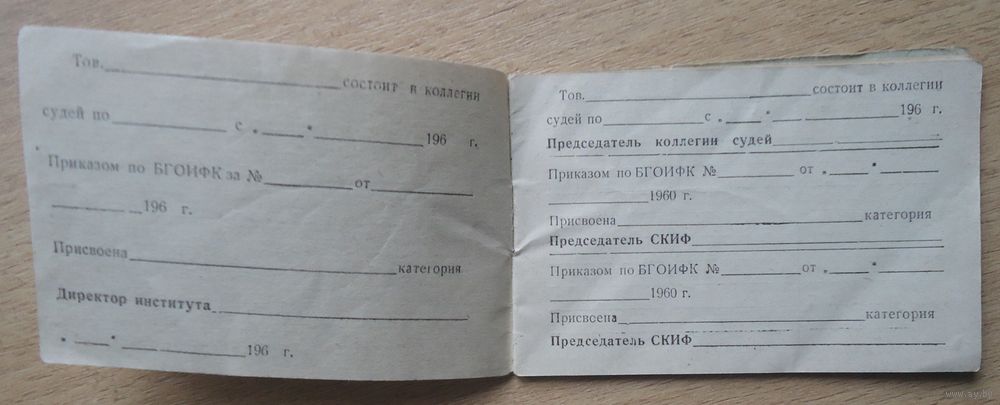 Тов. состоит в коллегии
судей по с „ " 196 г.
Приказом по БГОИФК за № от
196 г.
Присвоена категория
Директор института
„ " 196 г.
Тов. состоит в коллегии
судей по с „ " 196 г.
Председатель коллегии судей
Приказом по БГОИФК № от „ "
1960 г.
Присвоена категория
Председатель СКИФ
Приказом по БГОИФК № от „ "
1960 г.
Присвоена категория
Председатель СКИФ
www.ay.by